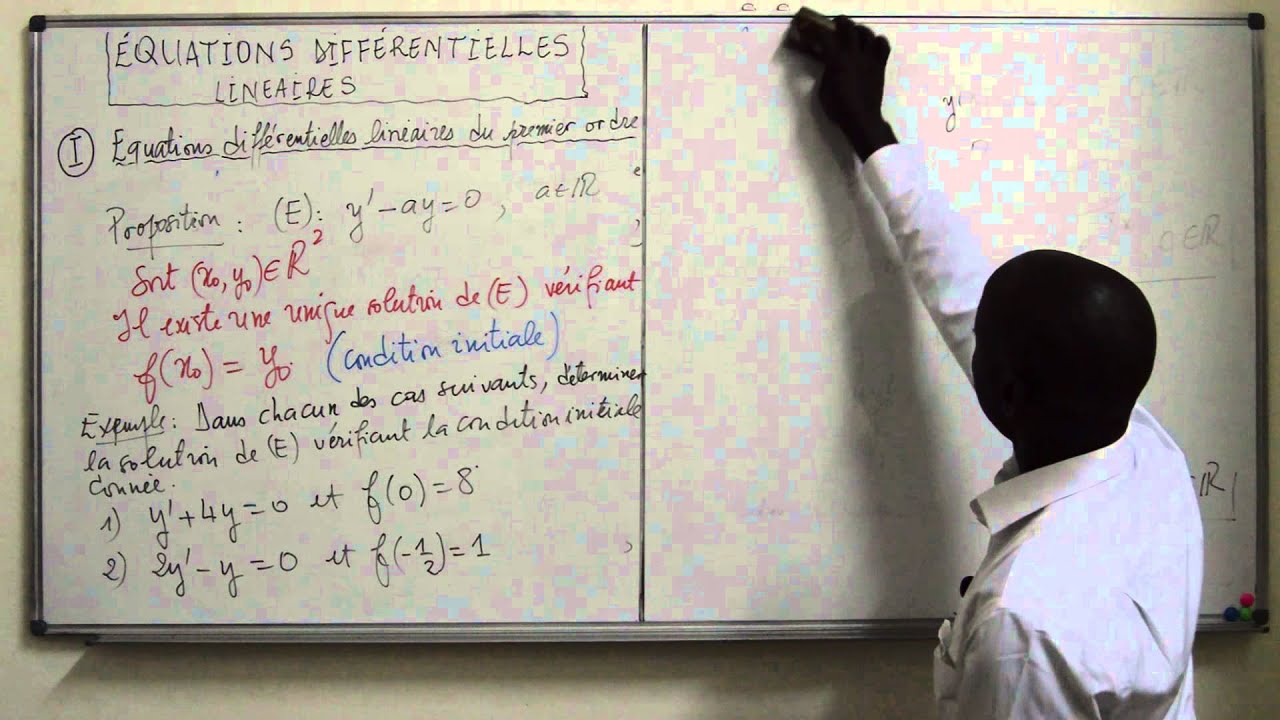 ÉQUATIONS DIFFÉRENTIELLES
LINEAIRES
I Equations différentielles linéaires du premier ordre
Proposition : (E): y' - ay = 0 , a ∈ ℝ
Soit (x₀, y₀) ∈ ℝ²
Il existe une unique solution de (E) vérifiant
f(x₀) = y₀. (condition initiale)
Exemple : Dans chacun des cas suivants, déterminer
la solution de (E) vérifiant la condition initiale
donnée.
1) y' + 4y = 0 et f(0) = 8
2) 2y' - y = 0 et f(-1/2) = 1
y'
∈ ℝ
∈ ℝ